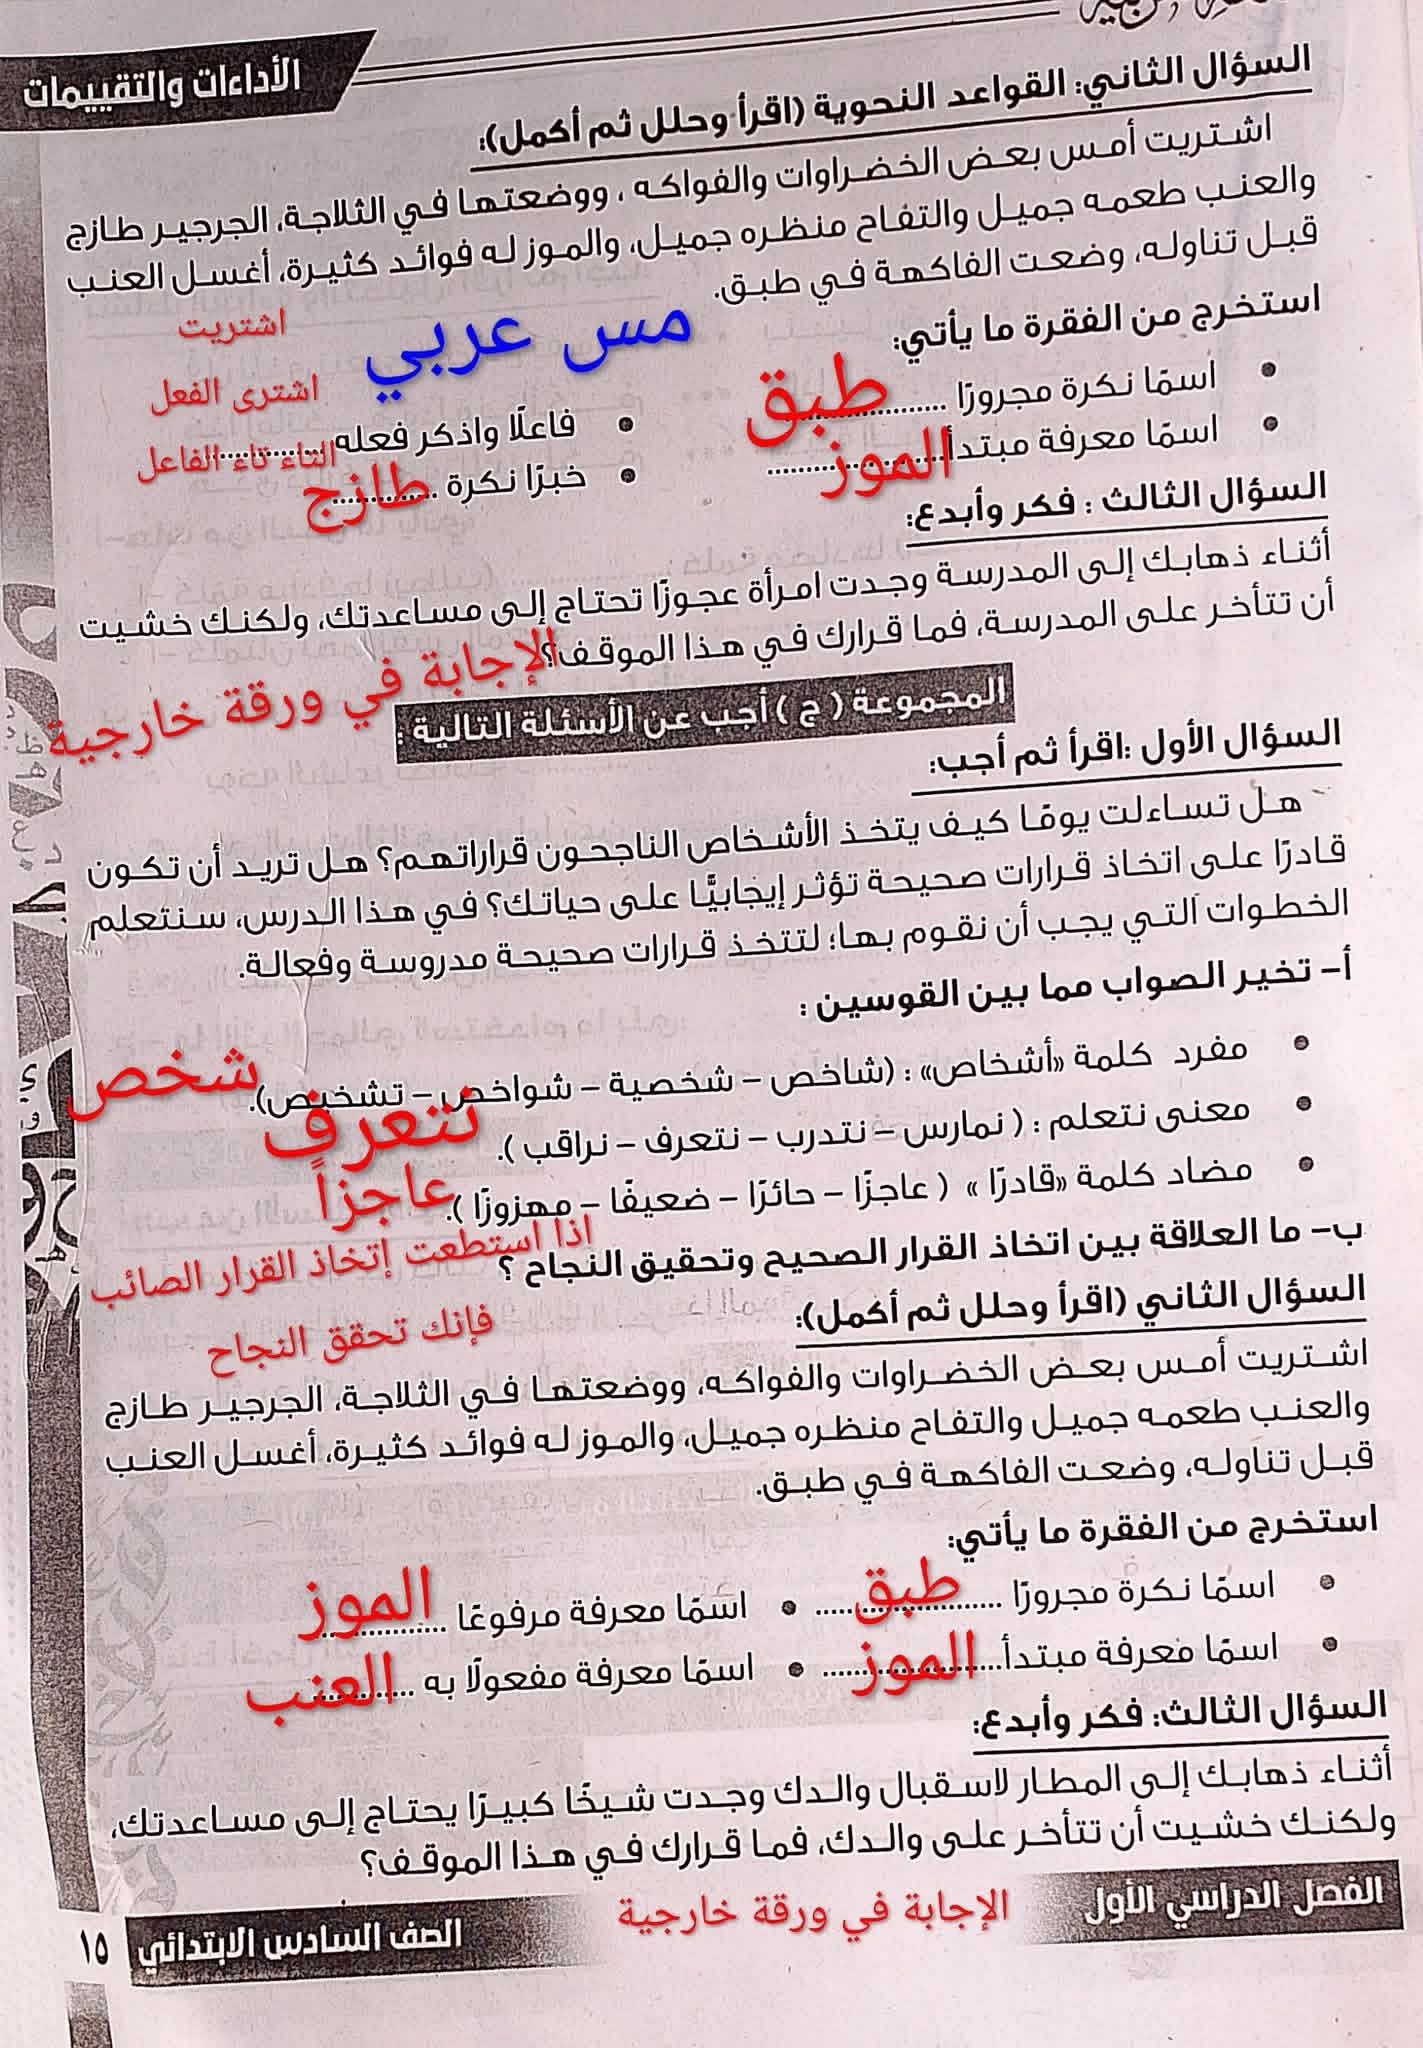 الأداءات والتقييمات
السؤال الثاني: القواعد النحوية (اقرأ وحلل ثم أكمل):
اشتريت أمس بعض الخضراوات والفواكه ، ووضعتها في الثلاجة، الجرجير طازج
والعنب طعمه جميل والتفاح منظره جميل، والموز له فوائد كثيرة، أغسل العنب
قبل تناوله، وضعت الفاكهة في طبق.
استخرج من الفقرة ما يأتي:
مس عربي
اشتريت
اشترى الفعل
التاء تاء الفاعل
• اسمًا نكرة مجرورًا .................... طبق
• فاعلًا واذكر فعله ....................
• اسمًا معرفة مبتدأ .................... الموز
• خبرًا نكرة .................... طازج
السؤال الثالث : فكر وأبدع:
أثناء ذهابك إلى المدرسة وجدت امرأة عجوزًا تحتاج إلى مساعدتك، ولكنك خشيت
أن تتأخر على المدرسة، فما قرارك في هذا الموقف؟
الإجابة في ورقة خارجية
المجموعة ( ج ) أجب عن الأسئلة التالية :
السؤال الأول :اقرأ ثم أجب:
هل تساءلت يومًا كيف يتخذ الأشخاص الناجحون قراراتهم؟ هل تريد أن تكون
قادرًا على اتخاذ قرارات صحيحة تؤثر إيجابيًّا على حياتك؟ في هذا الدرس، سنتعلم
الخطوات التي يجب أن نقوم بها؛ لنتخذ قرارات صحيحة مدروسة وفعالة.
أ- تخير الصواب مما بين القوسين :
• مفرد كلمة «أشخاص» : (شاخص – شخصية – شواخص – تشخيص). شخص
• معنى نتعلم : ( نمارس – نتدرب – نتعرف – نراقب ). نتعرف
• مضاد كلمة «قادرًا » ( عاجزًا – حائرًا – ضعيفًا – مهزورًا ). عاجزاً
ب- ما العلاقة بين اتخاذ القرار الصحيح وتحقيق النجاح ؟
اذا استطعت إتخاذ القرار الصائب
فإنك تحقق النجاح
السؤال الثاني (اقرأ وحلل ثم أكمل):
اشتريت أمس بعض الخضراوات والفواكه، ووضعتها في الثلاجة، الجرجير طازج
والعنب طعمه جميل والتفاح منظره جميل، والموز له فوائد كثيرة، أغسل العنب
قبل تناوله، وضعت الفاكهة في طبق.
استخرج من الفقرة ما يأتي:
• اسمًا نكرة مجرورًا .................... طبق
• اسمًا معرفة مرفوعًا .................... الموز
• اسمًا معرفة مبتدأ .................... الموز
• اسمًا معرفة مفعولًا به .................... العنب
السؤال الثالث: فكر وأبدع:
أثناء ذهابك إلى المطار لاسقبال والدك وجدت شيخًا كبيرًا يحتاج إلى مساعدتك،
ولكنك خشيت أن تتأخر على والدك، فما قرارك في هذا الموقف؟
الإجابة في ورقة خارجية
الفصل الدراسي الأول
الصف السادس الابتدائي
١٥